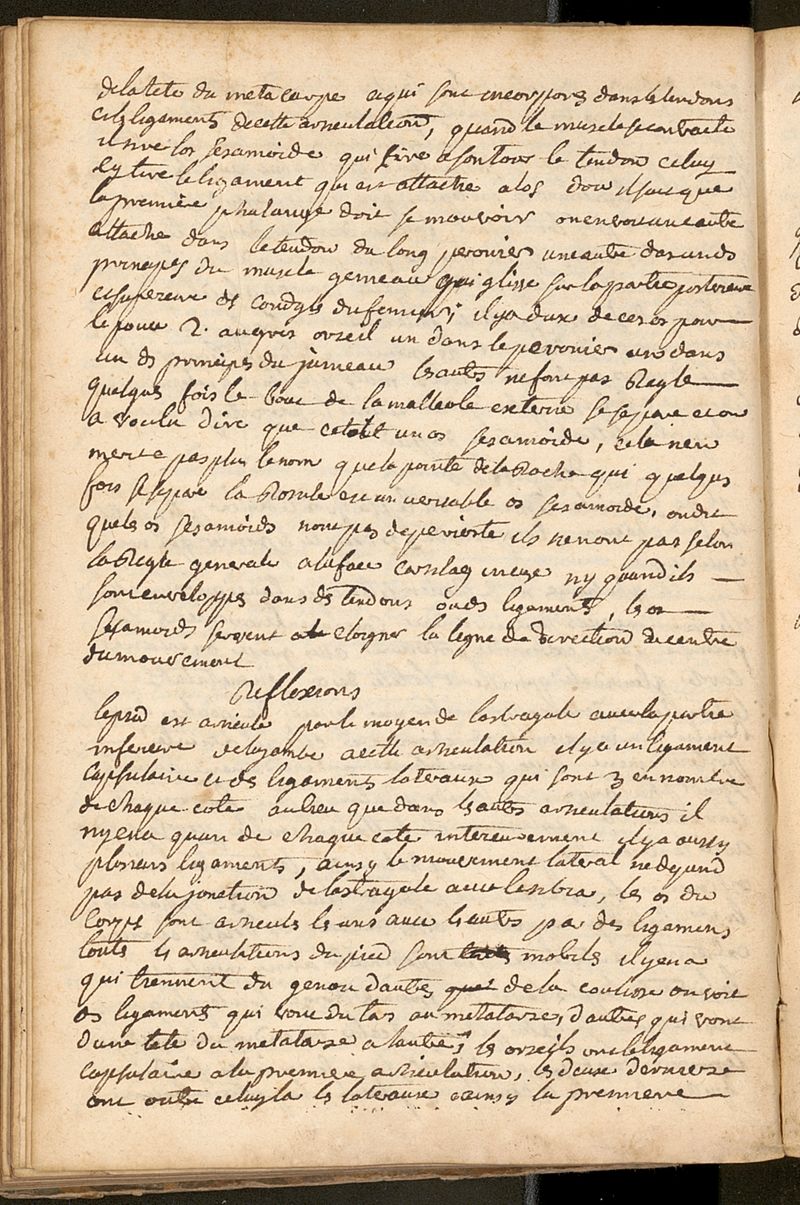 de la tete du metacarpe a qui sont incorpores dans les tendons
et les ligaments de cette articulation, quand le muscle se contracte
il tire los sesamoide qui tire a son tour le tendon celuy
cy tire le ligament qui est attache a los dou il suit que
la premiere phalange doit se mouvoir on en voit une autre
attache dans le tendon du long peronier une autre dans un ds
principes du muscle gemeau qui glisse sur la partie posterieure
et superieure ds condyls du femur; il y a deux de ces os pour
le pouce 2. au gros orteil un dans le peronier un dans
un ds principes du jumeau les auts ne font pas Regle
quelques fois le bout de la malleole externe se separe et on
a voulu dire que cetoit un os sesamoide, cela nen
merite pas plus le nom que la pointe de la Roche qui quelqus
fois se separe la Rotule est un veritable os sesamoide, on dit
quels os sesamoids nont pas de perioste ils nen ont pas selon
la Regle generale a la face cartilagineuse ny quand ils
sont enveloppes dans ds tendons ou ds ligaments, les os
sesamoids servent a eloigner la ligne de direction du centre
du mouvement
Reflexions
le pied est articule par le moyen de lastragale avec la partie
inferieure de la jambe a cette articulation il y a un ligament
capsulaire et ds ligaments lateraux qui sont 3 en nombre
de chaque cote au lieu que dans ls auts articulations il
ny en a quun de chaque cote interieurement il y a aussy
plusieurs ligaments, ainsy le mouvement lateral ne depend
pas de la jonction de lastragale avec le tibia, les os du
corps sont articuls ls uns avec ls auts par des ligamens
touts ls articulations du pied sont mobils il y en a
qui tiennent du genou dautres de la coulisse on voit
ds ligaments qui vont du tars au metatarse, dautres qui vont
dune tete du metatarse a lautre, ls orteils ont le ligament
capsulaire a la premiere articulation, les deux dernieres
ont outre celuy la ls lateraux ainsy la premiere